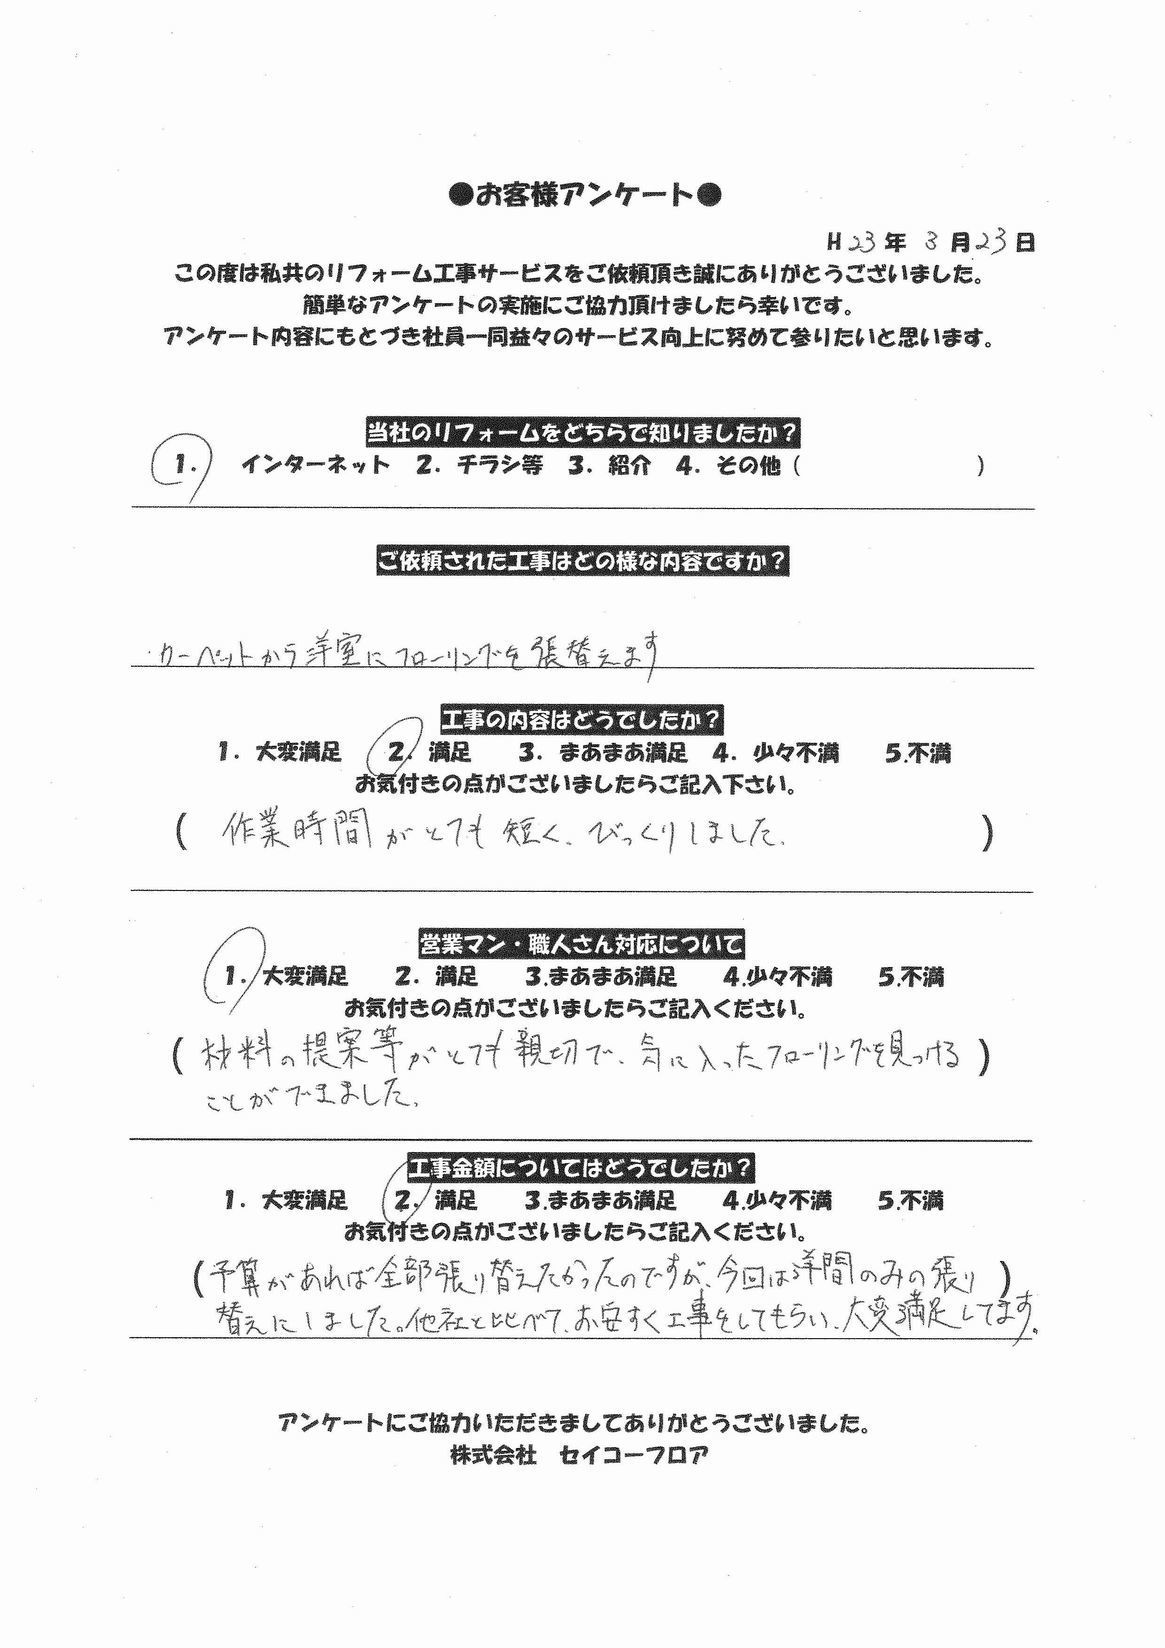 ●お客様アンケート●
H23年3月23日
この度は私共のリフォーム工事サービスをご依頼頂き誠にありがとうございました。
簡単なアンケートの実施にご協力頂けましたら幸いです。
アンケート内容にもとづき社員一同益々のサービス向上に努めて参りたいと思います。
当社のリフォームをどちらで知りましたか？
1. インターネット 2. チラシ等 3. 紹介 4. その他（ ）
ご依頼された工事はどの様な内容ですか？
・カーペットから洋室にフローリングを張替えます
工事の内容はどうでしたか？
1. 大変満足 2. 満足 3. まあまあ満足 4. 少々不満 5.不満
お気付きの点がございましたらご記入下さい。
（作業時間がとても短く、びっくりしました。）
営業マン・職人さん対応について
1. 大変満足 2. 満足 3.まあまあ満足 4.少々不満 5.不満
お気付きの点がございましたらご記入ください。
（材料の提案等がとても親切で、気に入ったフローリングを見つける）
ことができました。
工事金額についてはどうでしたか？
1. 大変満足 2. 満足 3.まあまあ満足 4.少々不満 5.不満
お気付きの点がございましたらご記入ください。
（予算があれば全部張り替えたかったのですが、今回は洋間のみの張り）
替えにしました。他社と比べて、お安すく工事をしてもらい、大変満足してます。
アンケートにご協力いただきましてありがとうございました。
株式会社 セイコーフロア